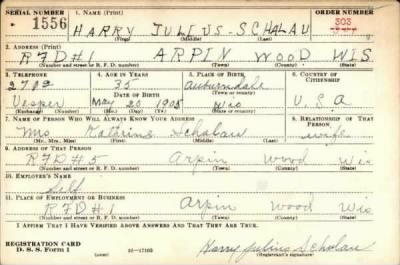 SERIAL NUMBER 1. NAME (Print) ORDER NUMBER
1556 HARRY JULIUS - SCHALAU 303
(First) (Middle) (Last)
2. ADDRESS (Print)
RFD#1 ARPIN WOOD WIS
(Number and street or R. F. D. number) (Town) (County) (State)
3. TELEPHONE 4. AGE IN YEARS 5. PLACE OF BIRTH 6. COUNTRY OF CITIZENSHIP
35 Auburndale
DATE OF BIRTH (Town or county)
Vesper May 20 1905 Wis U.S.A
(Exchange) (Number) (Mo.) (Day) (Yr.) (State or country)
7. NAME OF PERSON WHO WILL ALWAYS KNOW YOUR ADDRESS 8. RELATIONSHIP OF THAT PERSON
Mrs Kathrine Schalau wife
(Mr., Mrs., Miss) (First) (Middle) (Last)
9. ADDRESS OF THAT PERSON
RFD#5 Arpin Wood Wis
(Number and street or R. F. D. number) (Town) (County) (State)
10. EMPLOYER'S NAME
Self
11. PLACE OF EMPLOYMENT OR BUSINESS
RFD#1 Arpin Wood Wis
(Number and street or R. F. D. number) (Town) (County) (State)
I AFFIRM THAT I HAVE VERIFIED ABOVE ANSWERS AND THAT THEY ARE TRUE.
REGISTRATION CARD
D. S. S. Form 1 (over) 16—17105 Harry Julius Schalau
(Registrant's signature)